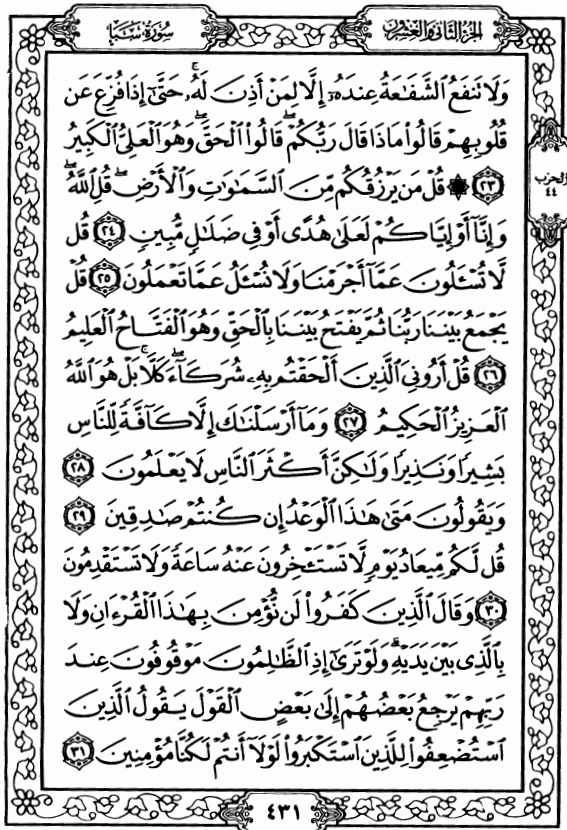 سُورَةُ سَبَإٍ
الجُزْءُ الثَّانِي وَالعِشْرُونَ
وَلَا تَنفَعُ الشَّفَاعَةُ عِندَهُۥٓ إِلَّا لِمَنْ أَذِنَ لَهُۥۚ حَتَّىٰٓ إِذَا فُزِّعَ عَن
قُلُوبِهِمْ قَالُوا۟ مَاذَا قَالَ رَبُّكُمْۖ قَالُوا۟ ٱلْحَقَّۖ وَهُوَ ٱلْعَلِىُّ ٱلْكَبِيرُ
﴿٢٣﴾ ۞ قُلْ مَن يَرْزُقُكُم مِّنَ ٱلسَّمَٰوَٰتِ وَٱلْأَرْضِۖ قُلِ ٱللَّهُۖ
وَإِنَّآ أَوْ إِيَّاكُمْ لَعَلَىٰ هُدًى أَوْ فِى ضَلَٰلٍ مُّبِينٍ ﴿٢٤﴾ قُل
لَّا تُسْـَٔلُونَ عَمَّآ أَجْرَمْنَا وَلَا نُسْـَٔلُ عَمَّا تَعْمَلُونَ ﴿٢٥﴾ قُلْ
يَجْمَعُ بَيْنَنَا رَبُّنَا ثُمَّ يَفْتَحُ بَيْنَنَا بِٱلْحَقِّ وَهُوَ ٱلْفَتَّاحُ ٱلْعَلِيمُ
﴿٢٦﴾ قُلْ أَرُونِىَ ٱلَّذِينَ أَلْحَقْتُم بِهِۦ شُرَكَآءَۖ كَلَّاۚ بَلْ هُوَ ٱللَّهُ
ٱلْعَزِيزُ ٱلْحَكِيمُ ﴿٢٧﴾ وَمَآ أَرْسَلْنَٰكَ إِلَّا كَآفَّةً لِّلنَّاسِ
بَشِيرًا وَنَذِيرًا وَلَٰكِنَّ أَكْثَرَ ٱلنَّاسِ لَا يَعْلَمُونَ ﴿٢٨﴾
وَيَقُولُونَ مَتَىٰ هَٰذَا ٱلْوَعْدُ إِن كُنتُمْ صَٰدِقِينَ ﴿٢٩﴾
قُل لَّكُم مِّيعَادُ يَوْمٍ لَّا تَسْتَـْٔخِرُونَ عَنْهُ سَاعَةً وَلَا تَسْتَقْدِمُونَ
﴿٣٠﴾ وَقَالَ ٱلَّذِينَ كَفَرُوا۟ لَن نُّؤْمِنَ بِهَٰذَا ٱلْقُرْءَانِ وَلَا
بِٱلَّذِى بَيْنَ يَدَيْهِۗ وَلَوْ تَرَىٰٓ إِذِ ٱلظَّٰلِمُونَ مَوْقُوفُونَ عِندَ
رَبِّهِمْ يَرْجِعُ بَعْضُهُمْ إِلَىٰ بَعْضٍ ٱلْقَوْلَ يَقُولُ ٱلَّذِينَ
ٱسْتُضْعِفُوا۟ لِلَّذِينَ ٱسْتَكْبَرُوا۟ لَوْلَآ أَنتُمْ لَكُنَّا مُؤْمِنِينَ ﴿٣١﴾
الحزب
٤٤
٤٣١